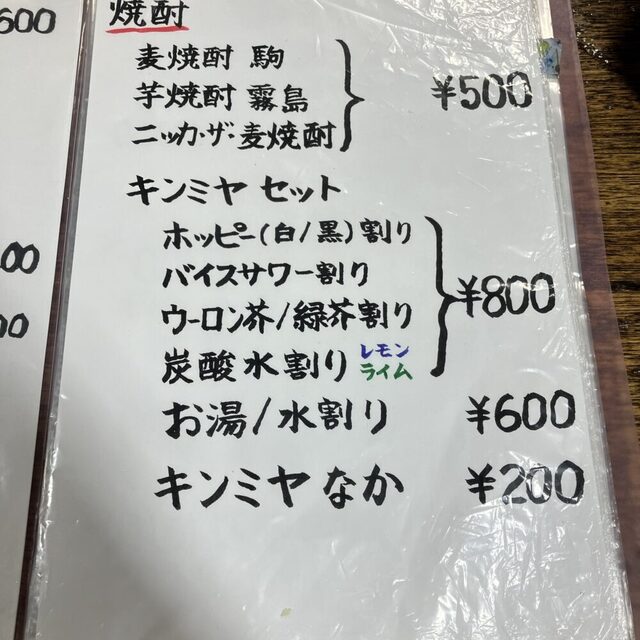 600
焼酎
麦焼酎 駒
芋焼酎 霧島
ニッカ・ザ・麦焼酎
¥500
キンミヤ セット
ホッピー(白/黒)割り
バイスサワー割り
ウーロン茶/緑茶割り
炭酸水割り レモン ライム
¥800
お湯/水割り ¥600
キンミヤ なか ¥200
00
00